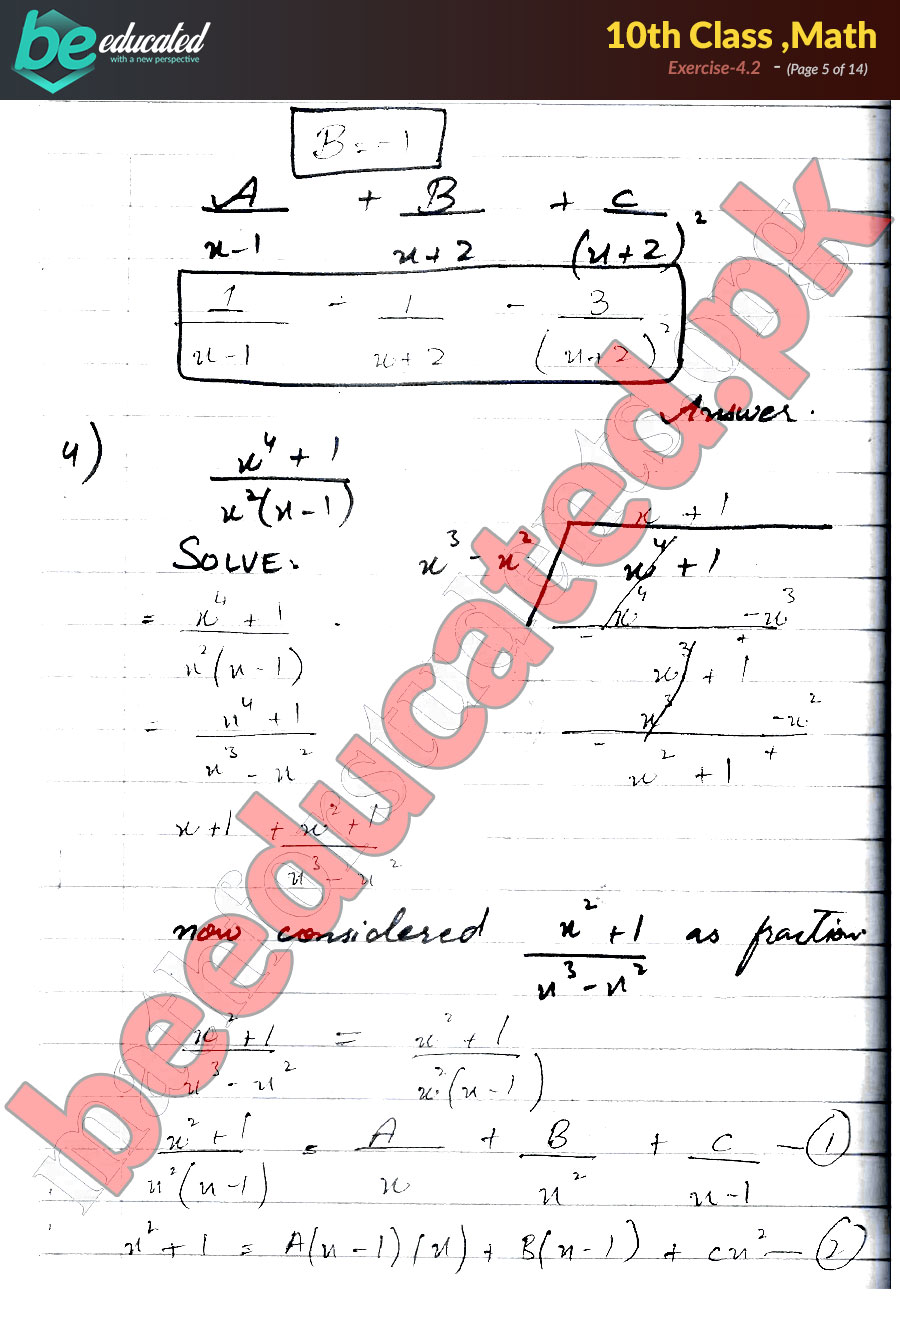 be educated
with a new perspective
10th Class ,Math
Exercise-4.2 - (Page 5 of 14)
B = -1
A/(x-1) + B/(x+2) + C/(x+2)²
1/(x-1) - 1/(x+2) - 3/(x+2)²
Answer.
4) (x⁴ + 1)/(x²(x-1))
SOLVE:
= (x⁴ + 1)/(x²(x-1))
= (x⁴ + 1)/(x³ - x²)
x+1 + (x²+1)/(x³ - x²)
x + 1
x³ - x² x⁴ + 1
x⁴ - x³
- +
x³ + 1
x³ - x²
- +
x² + 1
now considered (x² + 1)/(x³ - x²) as fraction
(x² + 1)/(x³ - x²) = (x² + 1)/(x²(x-1))
(x² + 1)/(x²(x-1)) = A/x + B/x² + C/(x-1) — ①
x² + 1 = A(x-1)(x) + B(x-1) + Cx² — ②
beeducated.pk